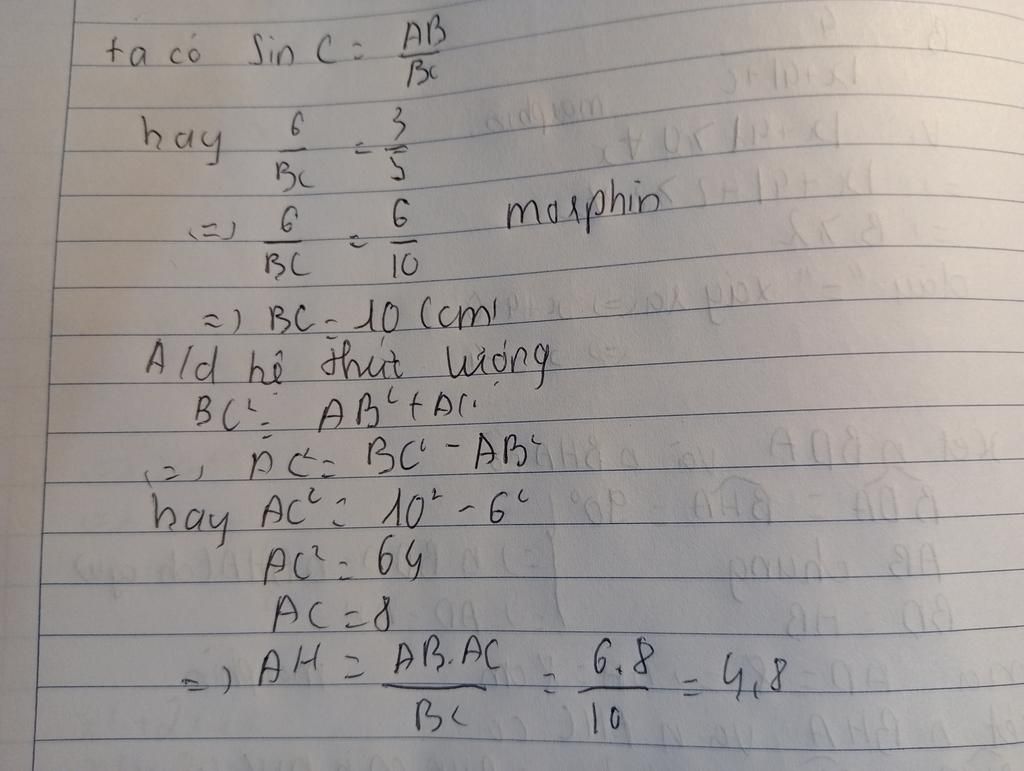 ta có Sin C = AB/BC
hay 6/BC = 3/5
(=) 6/BC = 6/10 morphin
=) BC = 10 (cm)
A/d hệ thức lượng
BC² = AB² + AC
(=) AC² = BC² - AB²
hay AC² = 10² - 6²
AC² = 64
AC = 8
=) AH = AB.AC/BC = 6.8/10 = 4,8